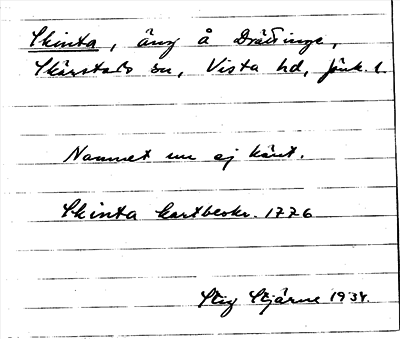 Skinta, äng å Drättinge,
Skärstads sn, Vista hd, Jönk. l.
Namnet nu ej känt.
Skinta kartbeskr. 1776
Stig Stjärne 1934.